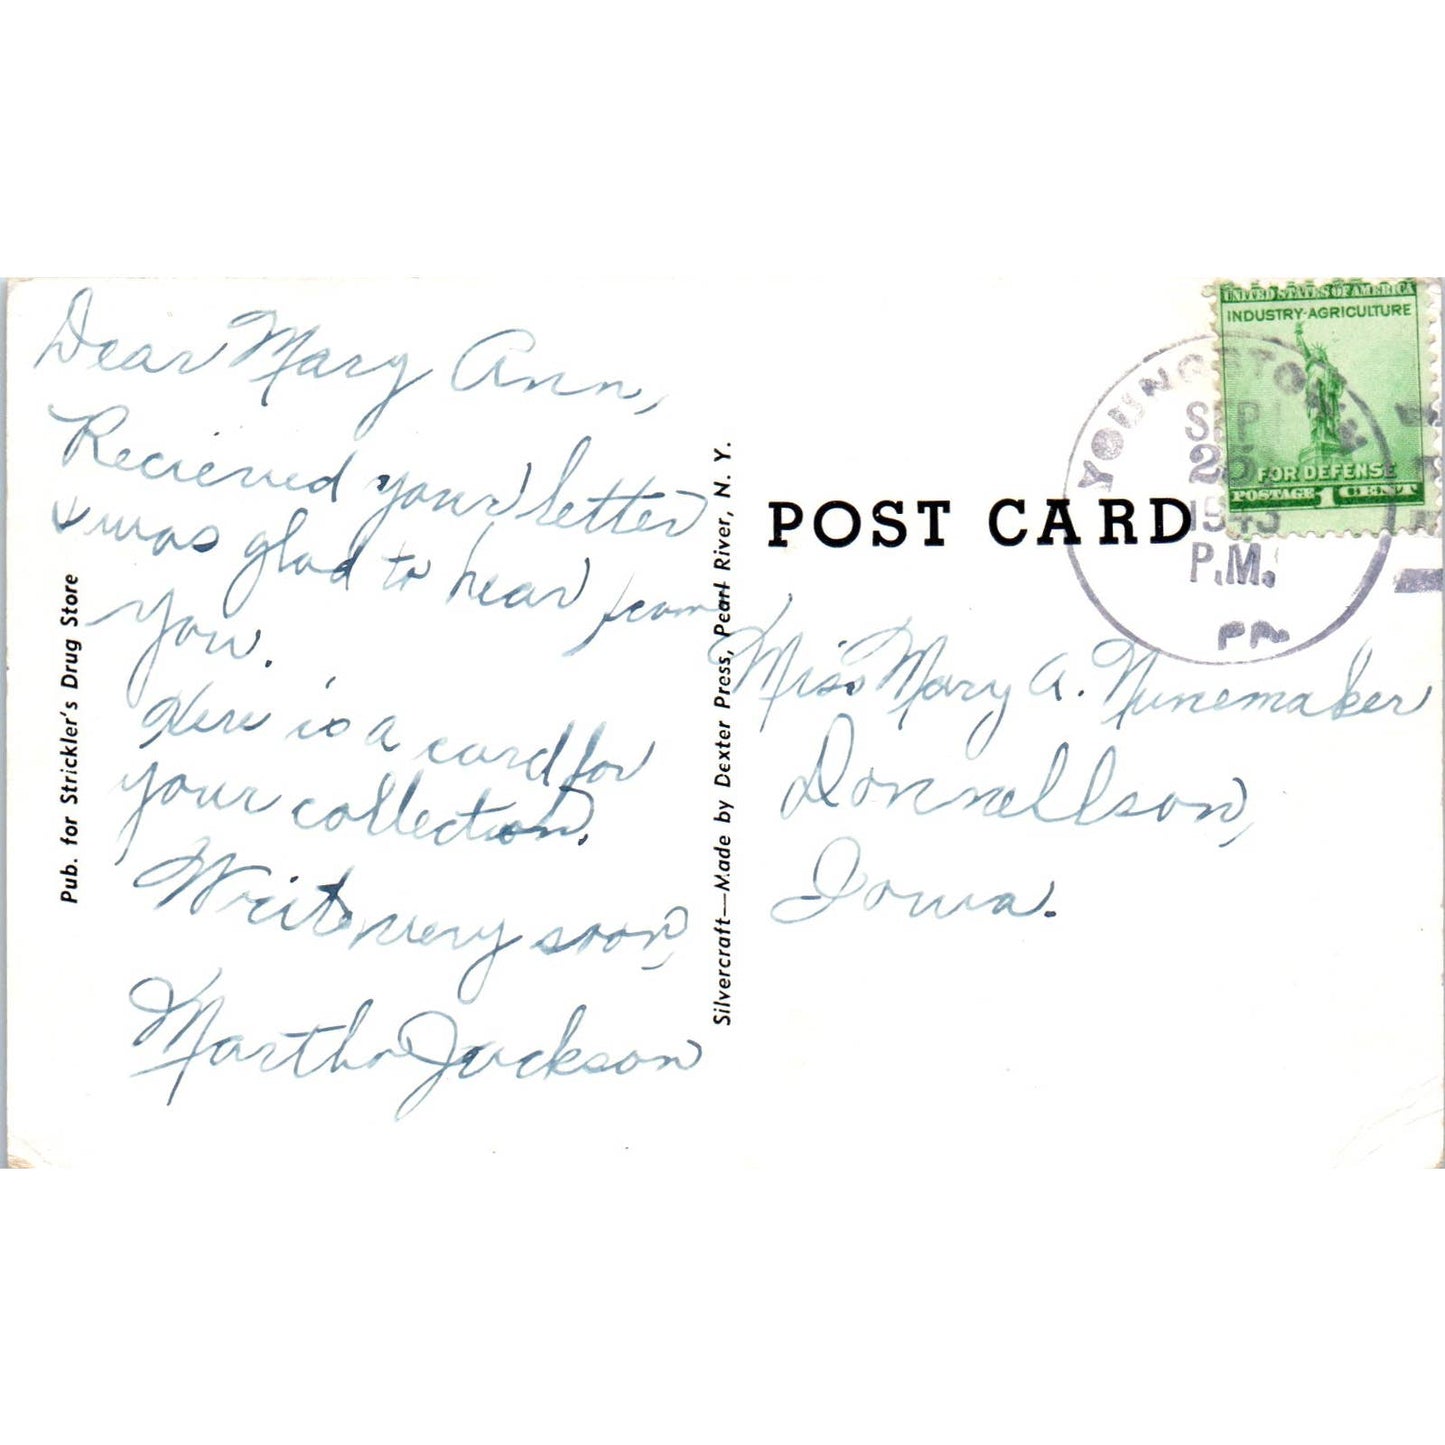 Dear Mary Ann,
Recieved your letter
& was glad to hear from
you.
Here is a card for
your collection.
Write very soon,
Martha Jackson
Pub. for Strickler's Drug Store
Silvercraft—Made by Dexter Press, Pearl River, N. Y.
POST CARD
YOUNGSTOWN
SEP
25
1943
P.M.
UNITED STATES OF AMERICA
INDUSTRY-AGRICULTURE
FOR DEFENSE
POSTAGE 1 CENT
Miss Mary A. Nunemaker
Donnellson,
Iowa.